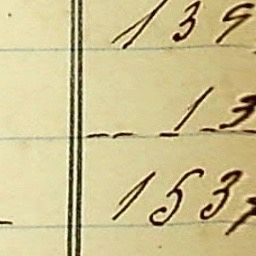 139
-- 13
1537